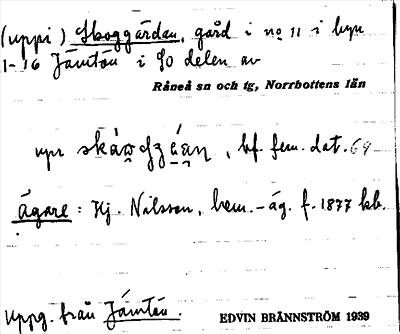 (uppi) Skoggårdan, gård i no 11 i byn
1-16 Jämtön i SO delen av
Råneå sn och tg, Norrbottens län
upr , bf. fem. dat. 69
Ägare : Hj. Nilsson, hem.-äg. f. 1877 kb.
Uppg. från Jämtön.
EDVIN BRÄNNSTRÖM 1939